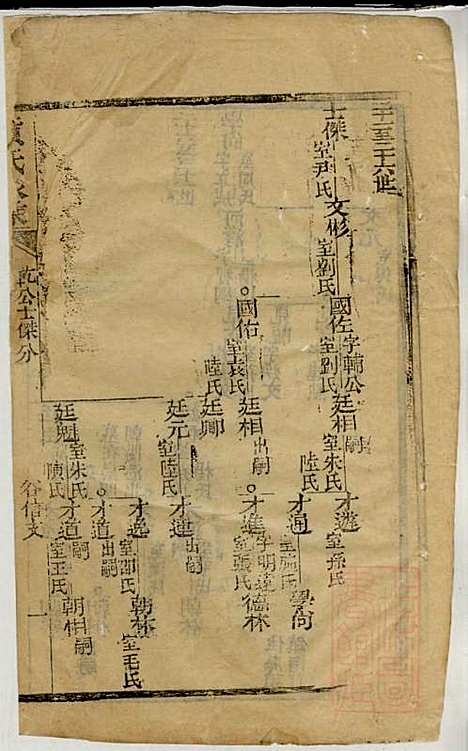 二十至二十六世
士傑 室尹氏
文彬 室劉氏
國佐 字輔公 室劉氏
廷相 嗣 室朱氏 陸氏
才遊 室孫氏
才通
學尚
國佑 室袁氏 陸氏
廷相 出嗣
才進 字明遠 室張氏
德林
廷卿
廷元 室陸氏
才連 出嗣
廷魁 室朱氏 陳氏
才逸 室邵氏
朝林 室毛氏
才道 出嗣
才道 嗣 室王氏
朝相 嗣
乾公士傑分
谷信支
一